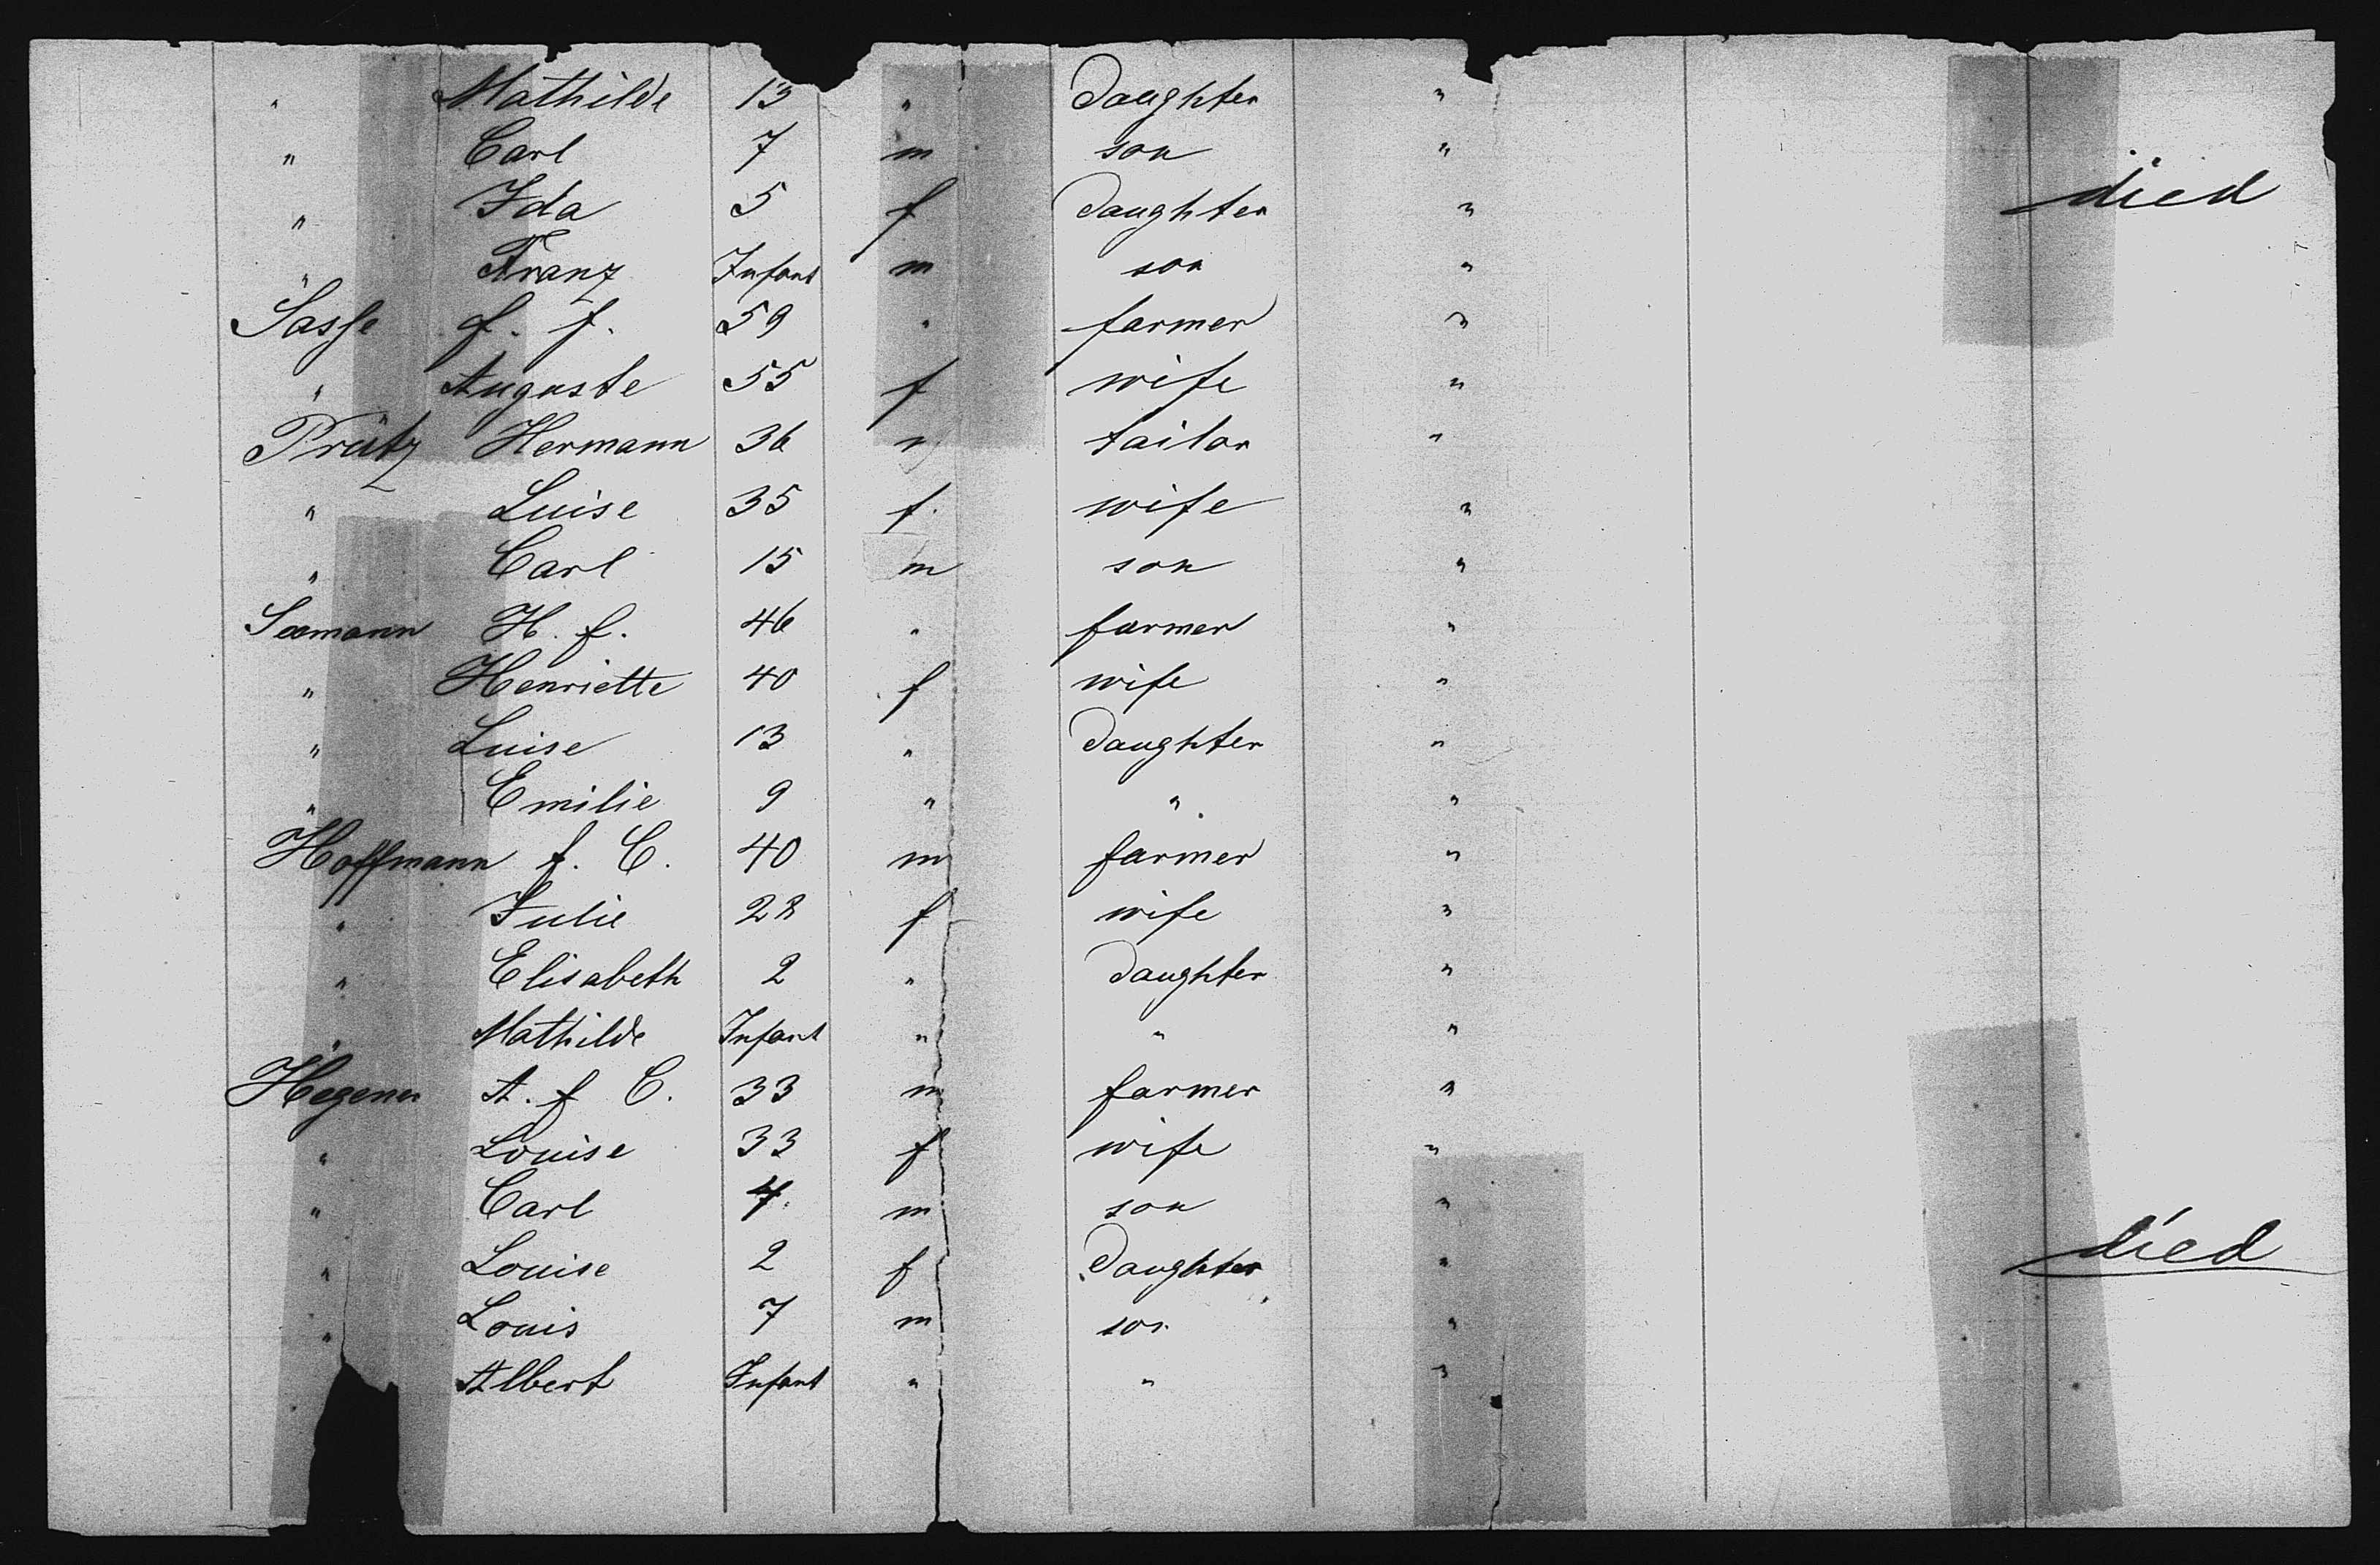 " Mathilde 13 " daughter "
" Carl 7 m son "
" Ida 5 f daughter " died
" Franz Infant m son "
Sasse f. f. 59 " farmer "
" Auguste 55 f wife "
Prütz Hermann 36 m tailor "
" Luise 35 f. wife "
" Carl 15 m son "
Seemann H. f. 46 " farmer "
" Henriette 40 f wife "
" Luise 13 " daughter "
" Emilie 9 " " "
Hoffmann f. C. 40 m farmer "
" Julie 28 f wife "
" Elisabeth 2 " daughter "
" Mathilde Infant " " "
Hegener A. f C. 33 m farmer "
" Louise 33 f wife "
" Carl 4 m son "
" Louise 2 f daughter " died
" Louis 7 m son "
Albert Infant " " "